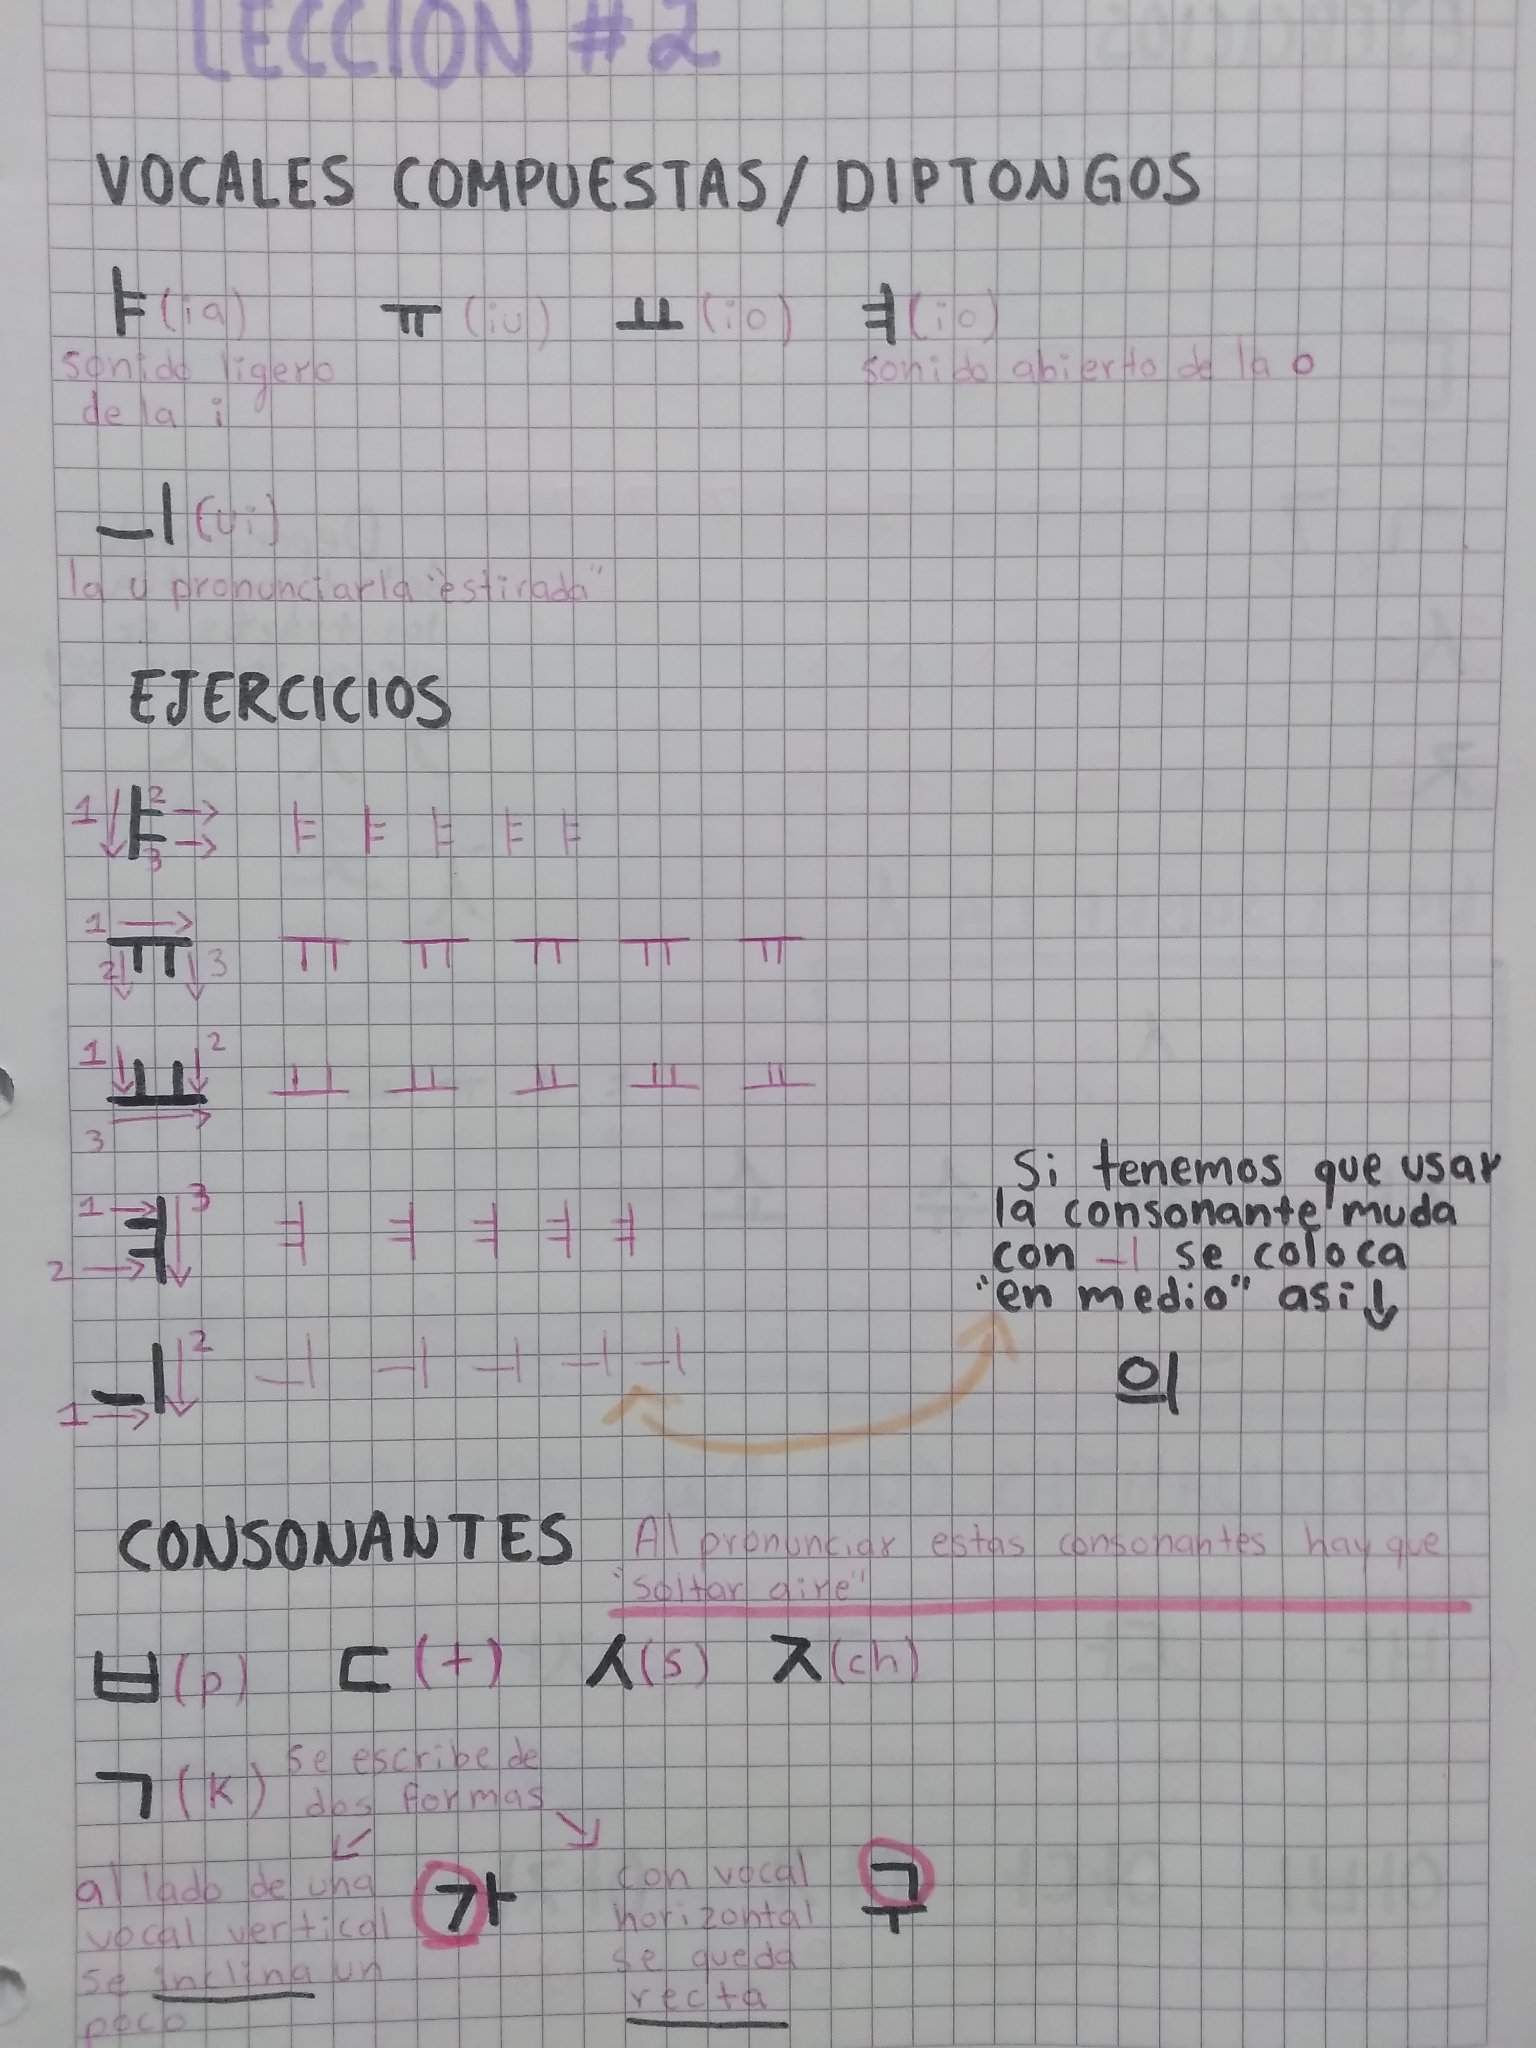 LECCION #2
VOCALES COMPUESTAS/DIPTONGOS
ㅑ(ia) ㅠ(iu) ㅛ(io) ㅕ(io)
sonido ligero
de la i
sonido abierto de la o
ㅢ(ui)
la u pronunciarla "estirada"
EJERCICIOS
1 ㅑ 2 3 ㅑ ㅑ ㅑ ㅑ ㅑ
1 ㅠ 2 3 ㅠ ㅠ ㅠ ㅠ ㅠ
1 ㅛ 2 3 ㅛ ㅛ ㅛ ㅛ ㅛ
1 ㅕ 3 2 ㅕ ㅕ ㅕ ㅕ ㅕ
ㅢ 2 1 ㅢ ㅢ ㅢ ㅢ ㅢ
Si tenemos que usar
la consonante muda
con ㅢ se coloca
"en medio" asi ↓
의
CONSONANTES
Al pronunciar estas consonantes hay que
"soltar aire"
ㅂ(p) ㄷ(t) ㅅ(s) ㅈ(ch)
ㄱ(k) se escribe de
dos formas
al lado de una
vocal vertical
se inclina un
poco
가
con vocal
horizontal
se queda
recta
구